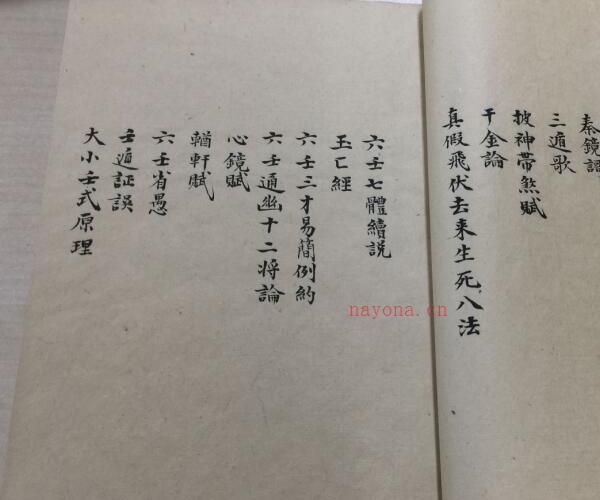 秦鏡語
三遁歌
披神帶煞賦
千金論
真假飛伏去来生死八法
六壬七體續説
玉匕經
六壬三才易簡例約
六壬通幽十二将論
心鏡賦
輶軒賦
六壬省愚
壬遁証誤
大小壬式原理
nayona.cn